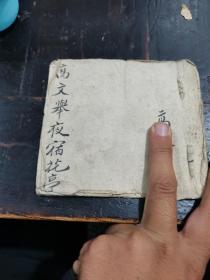 高文舉夜宿花亭
高